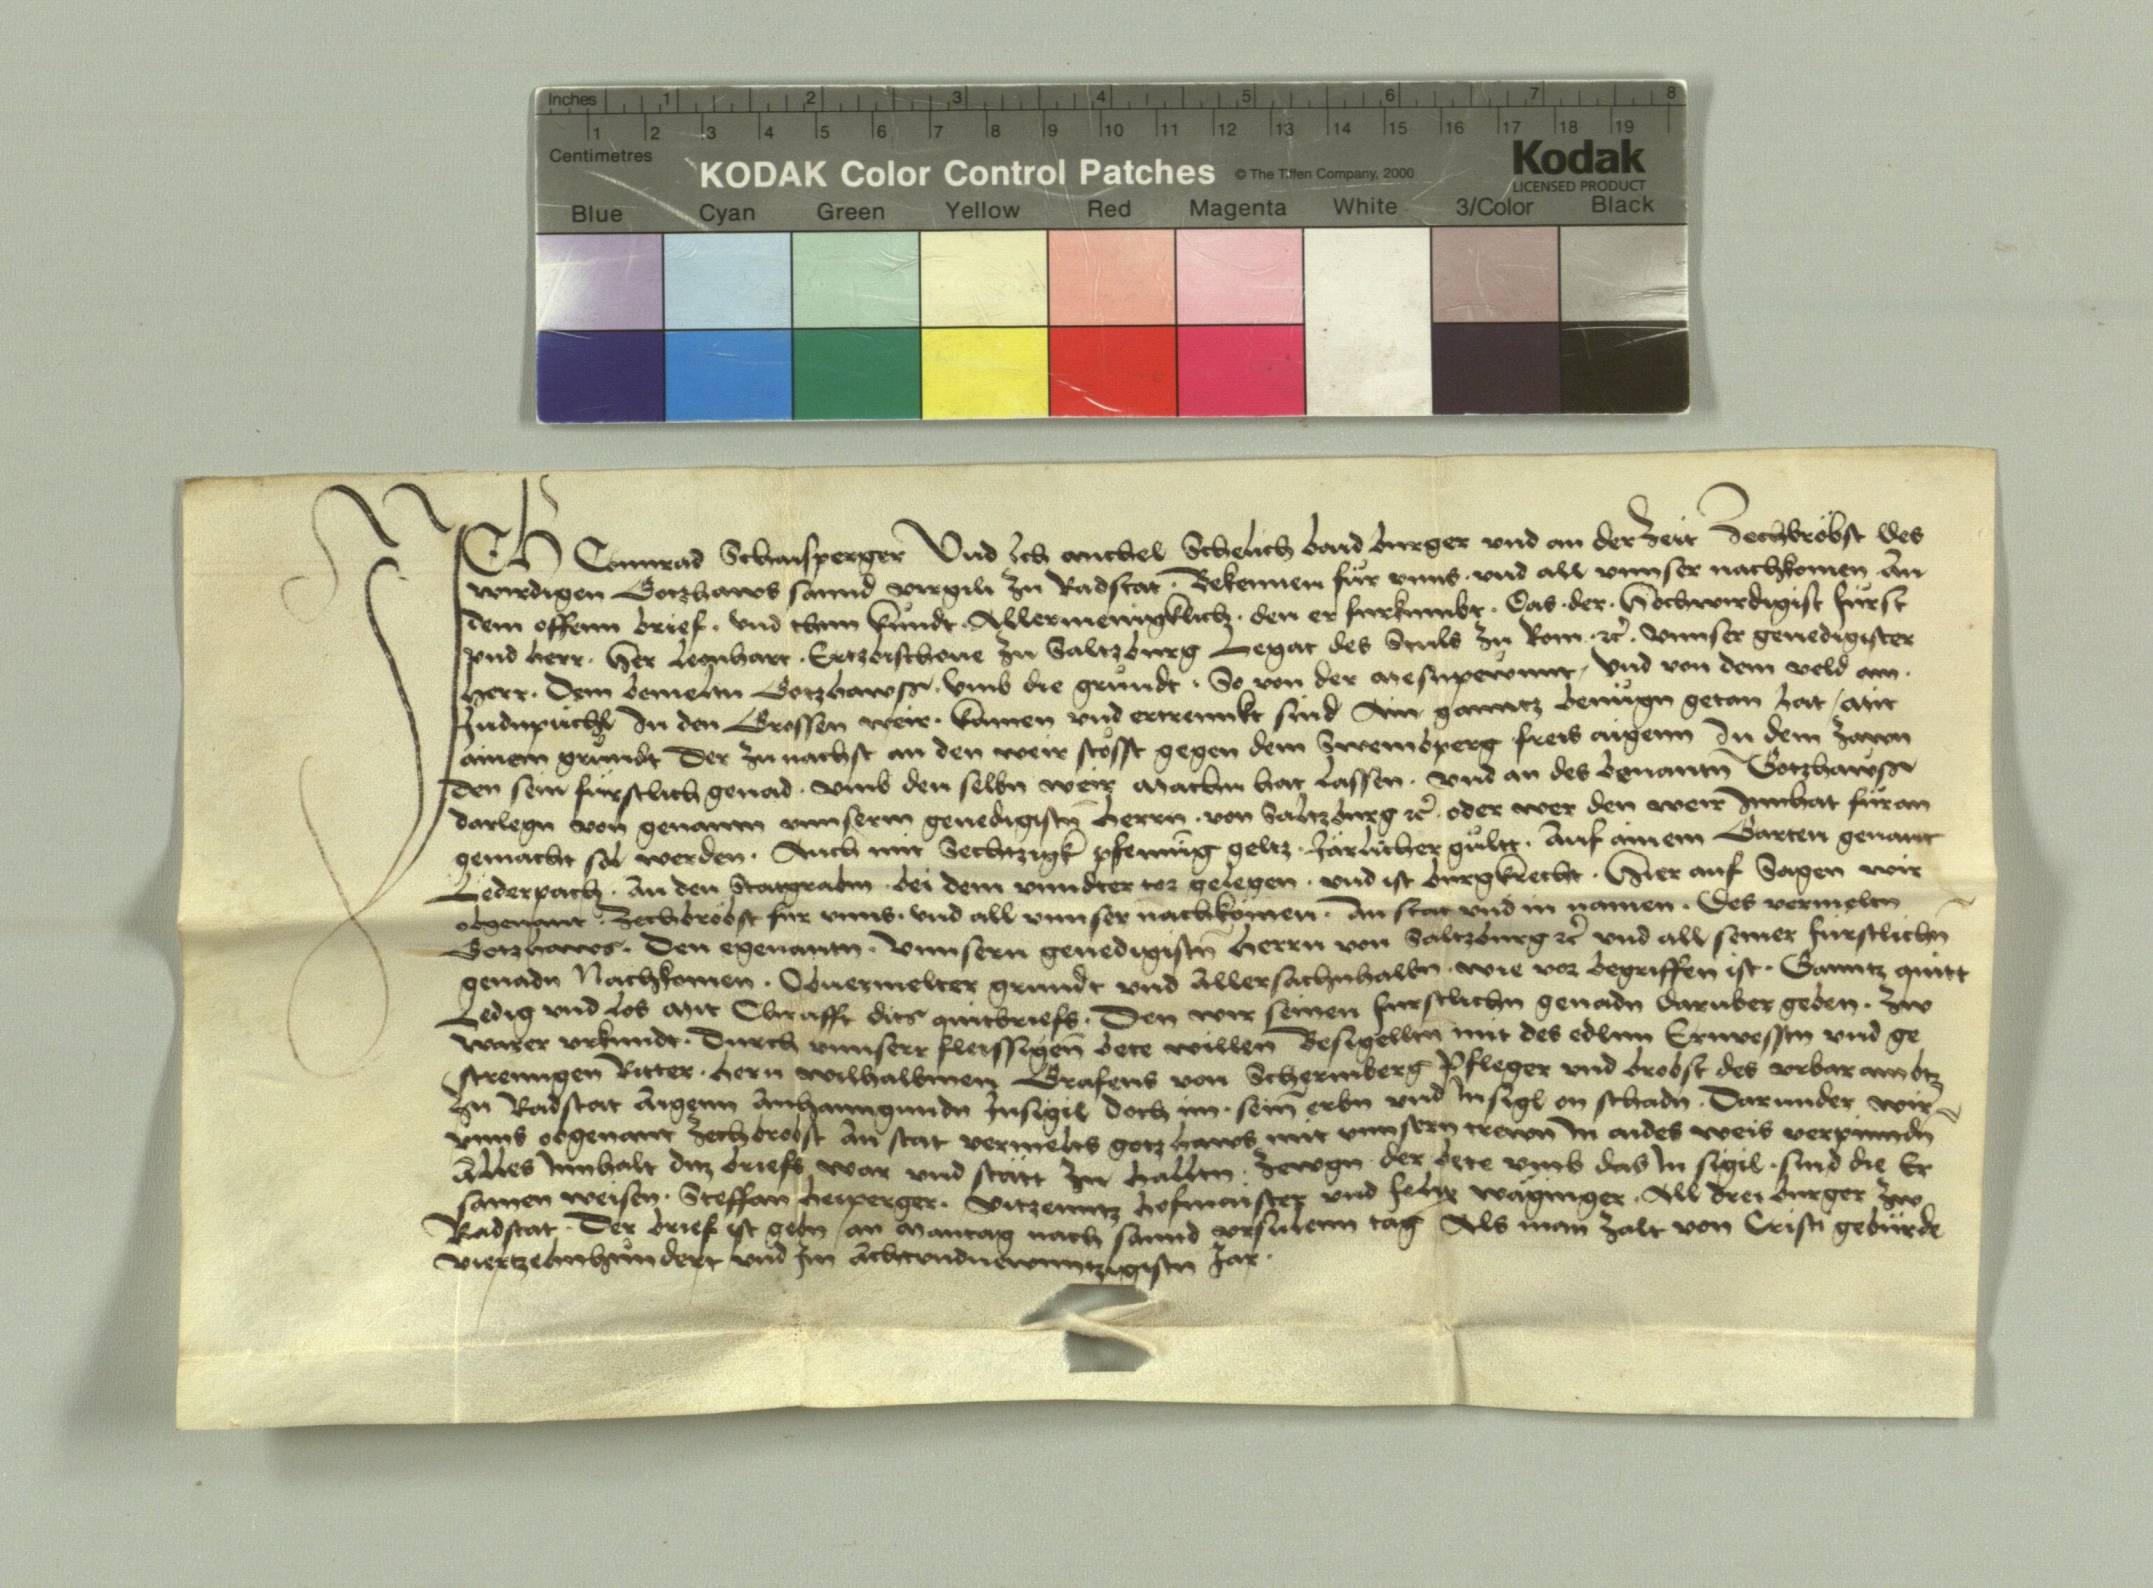 Inches 1 2 3 4 5 6 7 8
1 2 3 4 5 6 7 8 9 10 11 12 13 14 15 16 17 18 19
Centimetres
KODAK Color Control Patches © The Tiffen Company, 2000 Kodak
LICENSED PRODUCT
Blue Cyan Green Yellow Red Magenta White 3/Color Black
ICh Connrad Schaisperger Vnd Ich michel Schelich baid burger vnd an der Zeit Zechbröbst des
wirdigen Gotzhaws sannd virgili Zu Radstat. Bekennen für vnns. vnd all vnnser nachkomen. An
dem offenn brief. vnd thun kundt. Allermenigklich. den er furkumbt. Das. der. Hochwirdigist fürst
vnd herr. Her Leonhart. Ertzbischoue Zu Saltzburg Legat des Stuls Zu Rom. ec. Vnnser genedigister
herr. Dem bemeltn Gotzhawss. vmb die gründt. So von der vnd von dem veld am.
In den Grossen weir. kumen vnd ertrennkt sind Ain ganntz benügn getan hat / mit
ainem grundt Der Zunachst an den weir stosst gegen dem Swemberg freis aigenn In dem Zawn
den sein fürstlich genad. vmb den selbn weir machn hat lassen. vnd an des benantn Gotzhawss
darlegn von genantn vnnserm genedigistn herrn. von Saltzburg ec. oder wer den weir Innhat füran
gemacht sol werden. Auch mit Sechtzigk pfennig geltz. Järlicher gültt. Auf ainem Garten genant
Lederpach. An den Statgrabm. bei dem vnndter tor gelegen. vnd ist burgkrecht. Hier auf Sagen wir
obgenant. Zechbröbst für vnns. vnd all vnnser nachkomen. An stat vnd in namen. Des vermeltn
Gotzhaws. Den egenantn. Vnnsern genedigistn herrn von Saltzburg ec. vnd all seiner fürstlichn
genadn Nachkomen. Obuermelter grundt vnd Allersachnhalbn. wie vor begriffen ist. Ganntz quitt
Ledig vnd los mit Chrafft ditz quitbriefs. Den wir seinen fürstlichn genadn darüber geben. Zw
warer vrkundt. Durch vnnserr fleissigen bete willen Besigelltn mit des edlnn Ernvesstn vnd ge
strenngen Ritter. hern wilhalbmen Grafens von Schernberg Pfleger vnd brobst des vrbarambtz
Zu Radstat Aigenn Anhanngundn Insigil doch im. sein erbn vnd Insigl on schadn. Darunder wir
vnns obgenant Zechbrobst An stat vermelts gotzhaws mit vnnsern trewn In aides weis verpinndn
Alles Innhalt ditz briefs war vnd stätt Zu halltn. Zewgn der bete vmb das In sigil. sind die Er
samen weisen. Steffan heiperger. Vitzenntz hofmaister vnd felix wäginger. All drei burger Zw
Radstat. Der brief ist gebn / an Mantag nach sannd vrsulenn tag Als man Zalt von Cristi gebürde
viertzehnhundert vnd Im Achtundnewnntzigistn Jar.